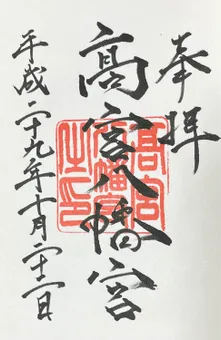 奉拝
高宮八幡宮
平成二十九年十月二十二日
高宮八幡宮之印